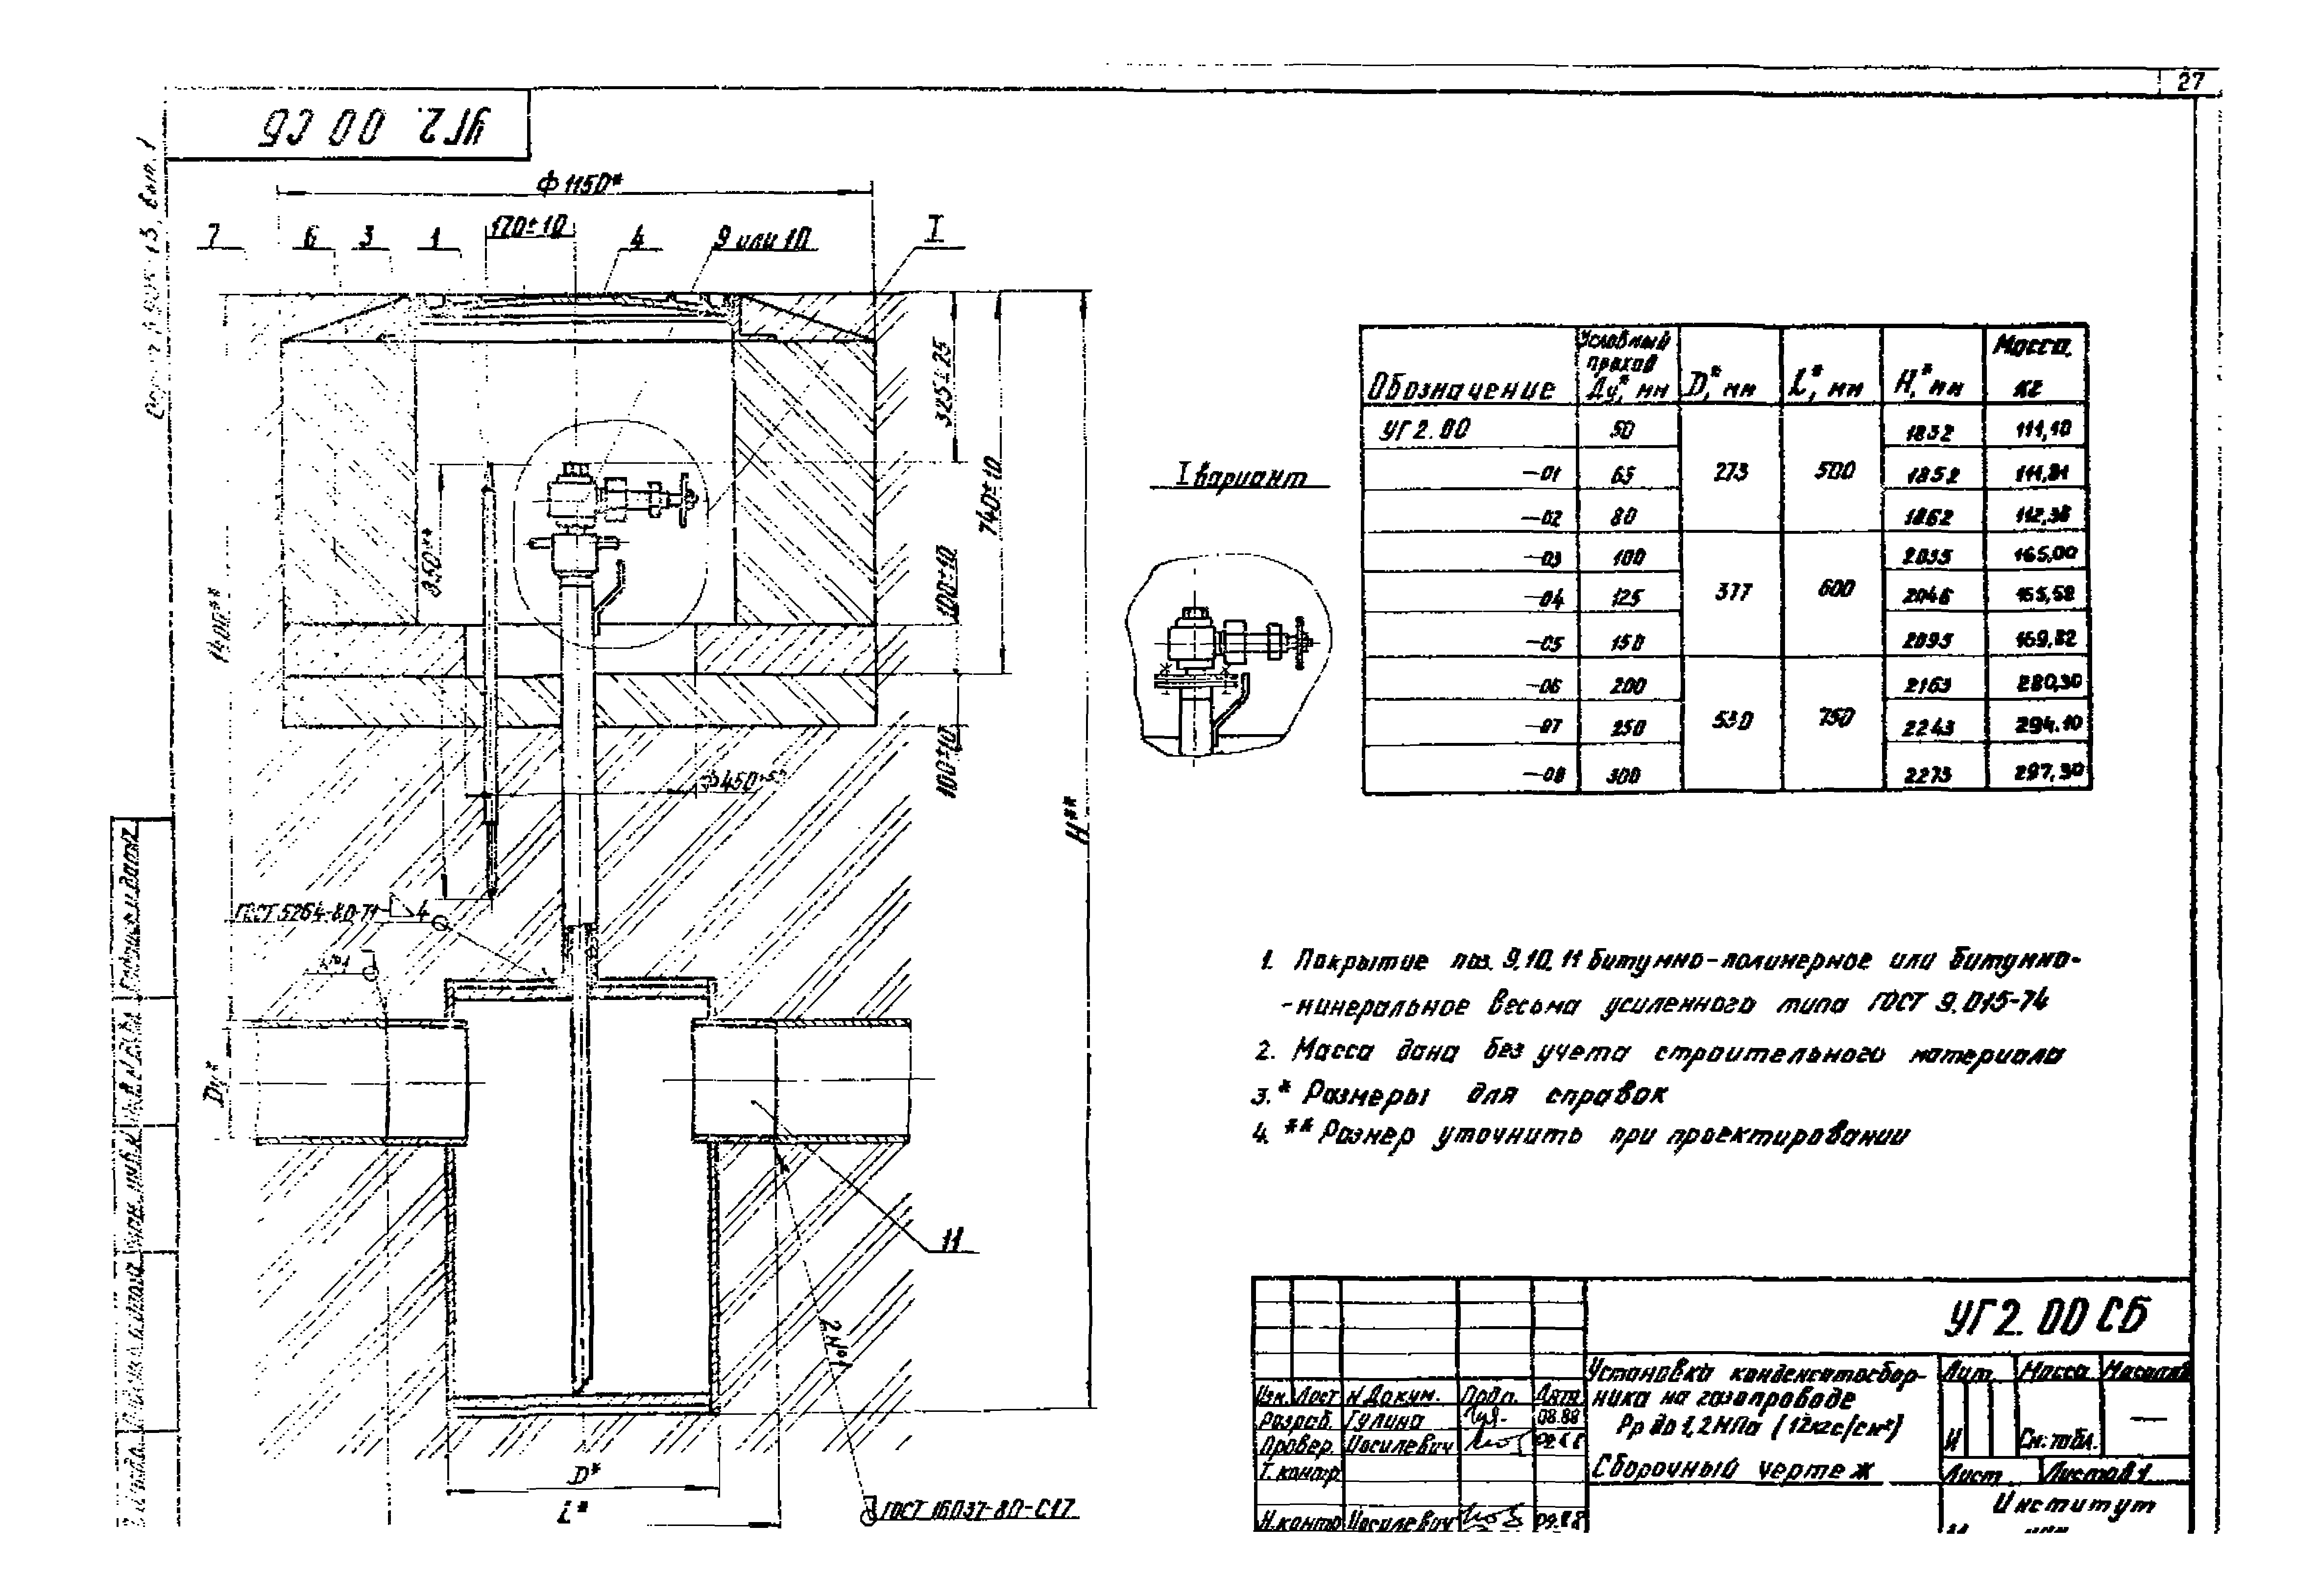 27
УГ2. 00 СБ
ф 1150*
7
6
3
1
170±10
4
9 или 10
I
325±25
740±10
350**
1400**
100±10
100±10
ф450
H**
ГОСТ 5264-80-Т1 4
№1
Dy*
11
№2
D*
L*
ГОСТ 16037-80-С17
I вариант
Обозначение Условный проход Ду,* мм D,* мм L,* мм H,* мм Масса, кг
УГ2.00 50 273 500 1832 111,10
-01 65 1852 111,81
-02 80 1862 112,38
-03 100 377 600 2035 165,00
-04 125 2046 165,58
-05 150 2095 169,82
-06 200 530 750 2163 280,30
-07 250 2243 294.10
-08 300 2273 297,30
1. Покрытие поз. 9,10,11 битумно-полимерное или битумно-
-минеральное весьма усиленного типа ГОСТ 9.015-74
2. Масса дана без учета строительного материала
3.* Размеры для справок
4. ** Размер уточнить при проектировании
УГ2. 00 СБ
Установка конденсатосбор-
ника на газопроводе
Рр до 1,2 МПа (12кгс/см²)
Сборочный чертеж
Лит. Масса Масштаб
И См. табл. —
Лист Листов 1
Институт
Изм. Лист № Докум. Подп. Дата
Разраб. Гулина 08.88
Провер. Иосилевич
Т. контр.
Н. контр Иосилевич 09.88